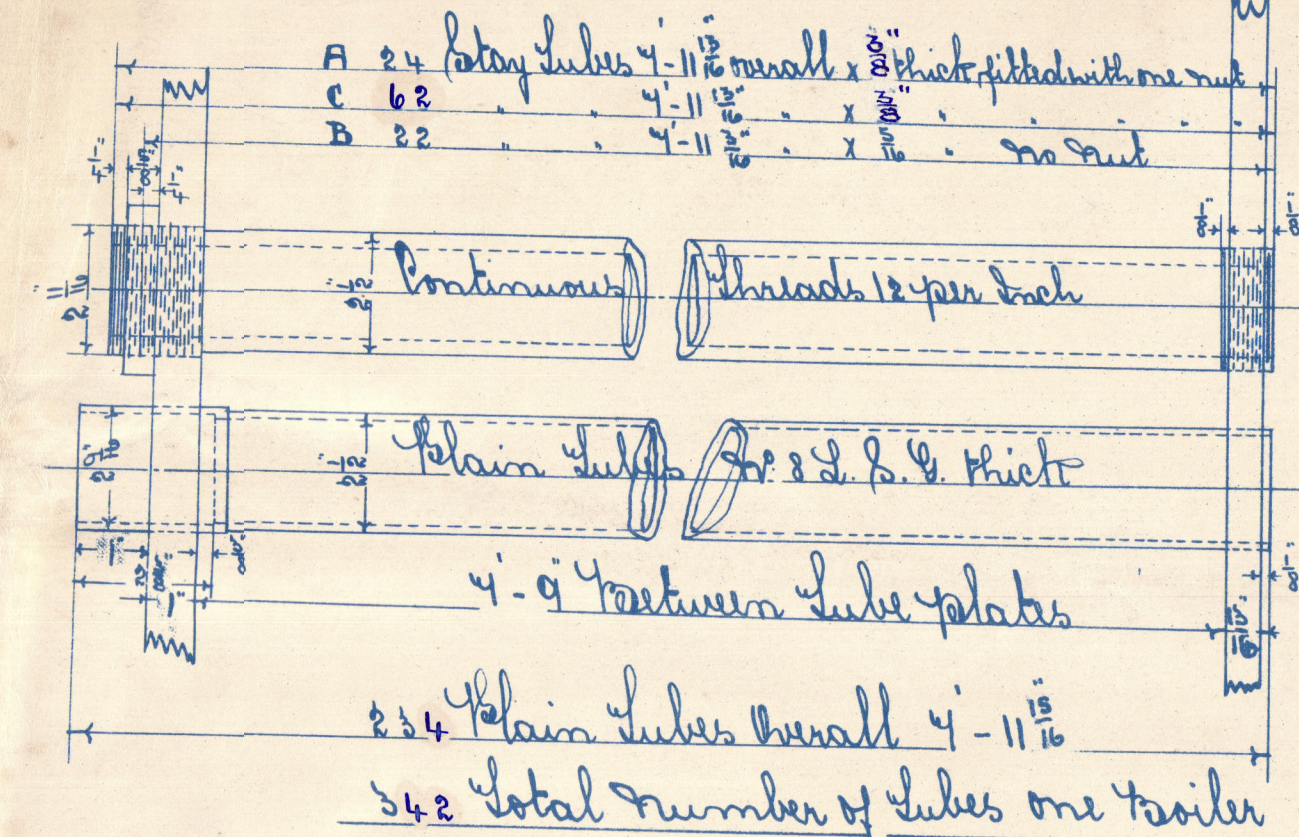 A 24 Stay Tubes 7'-11 15/16" overall x 3/8" thick, fitted with one nut
C 62 " " 7'-11 15/16" " x 3/8" " " " "
B 22 " " 7'-11 " x 5/16 " no nut
1/4"
1/4"
1/8"
1/8"
2 11/16"
2 1/2"
Continuous Threads 12 per Inch
2 9/16"
2 1/2"
Plain Tubes No. 8 L.S.G. thick
1/8"
7'-9" Between Tube plates
15/16"
234 Plain Tubes Overall 7'-11 15/16"
342 Total Number of Tubes one Boiler